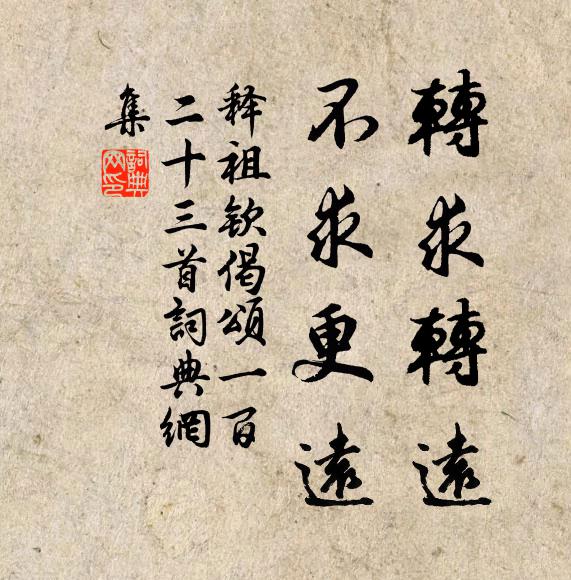 轉求轉遠
不求更遠
释祖欽偈頌一百
二十三首詞典網
集
詞典
网印